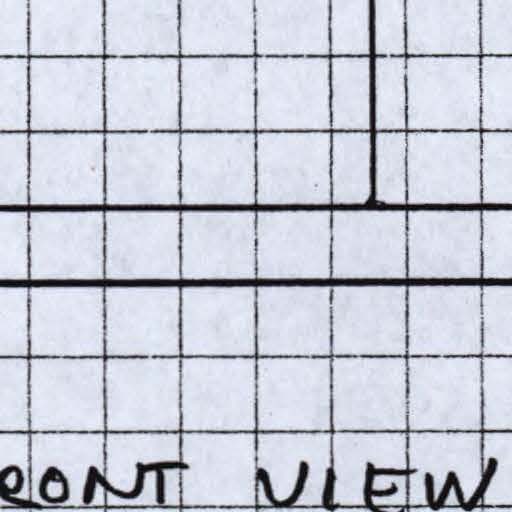 RONT VIEW